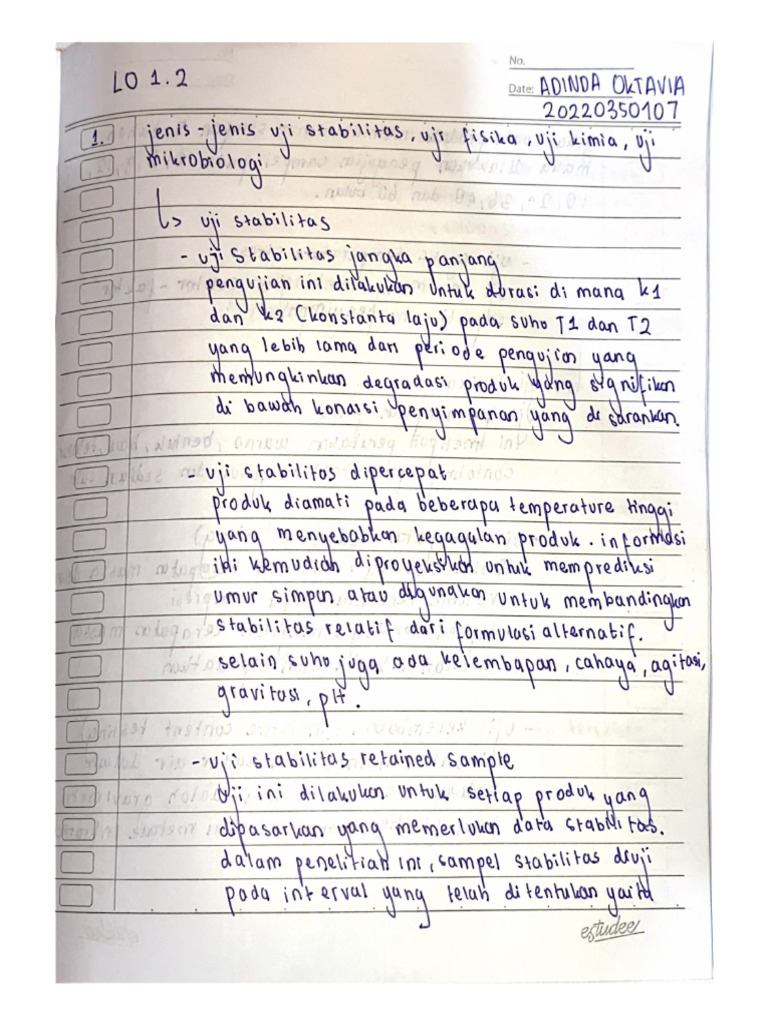 LO 1.2
No.
Date: ADINDA OKTAVIA
20220350107
1. jenis - jenis uji stabilitas, uji fisika, uji kimia, uji
mikrobiologi
↳ uji stabilitas
- uji Stabilitas jangka panjang
pengujian ini dilakukan untuk durasi di mana k1
dan k2 (konstanta laju) pada suho T1 dan T2
yang lebih lama dari periode pengujian yang
memungkinkan degradasi produk yang signifikan
di bawah kondisi penyimpanan yang di sarankan.
- uji stabilitas dipercepat
produk diamati pada beberapa temperature tinggi
yang menyebabkan kegagalan produk. informasi
ini kemudian diproyeksikan untuk memprediksi
umur simpan atau digunakan untuk membandingkan
stabilitas relatif dari formulasi alternatif.
selain suho juga ada kelembapan, cahaya, agitasi,
gravitasi, pH.
- uji stabilitas retained sample
Uji ini dilakukan untuk setiap produk yang
dipasarkan yang memerlukan data stabilitas.
dalam penelitian ini, sampel stabilitas diuji
pada interval yang telah ditentukan yaitu
estudee